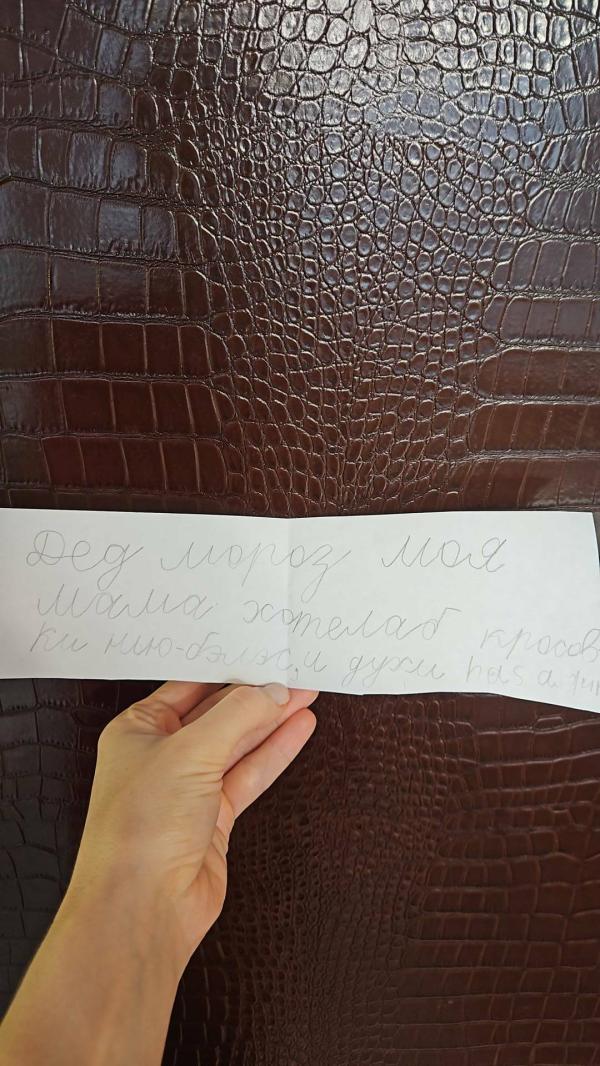 Дед мороз моя
мама хотелаб кросов
ки нию-бэлэс, и духи has a